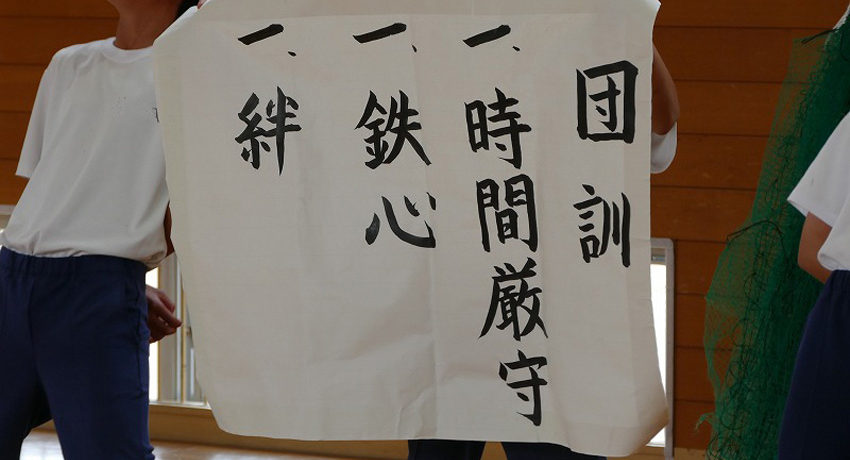 団訓
一、時間厳守
一、鉄心
一、絆